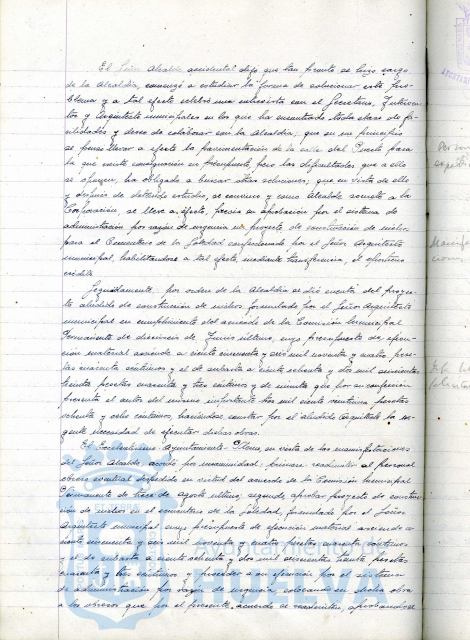 El Señor Alcalde accidental dijo que tan pronto se hizo cargo
de la Alcaldía, comenzó a estudiar la forma de solucionar este pro-
blema y a tal efecto celebró una entrevista con el Secretario, Interven-
tor y Arquitecto municipales en los que ha encontrado toda clase de fa-
cilidades y deseo de colaborar con la Alcaldía; que en un principio
se pensó llevar a efecto la pavimentación de la calle del para
la que existe consignación en Presupuesto, pero las dificultades que a ello
se oponen, ha obligado a buscar otras soluciones; que en vista de ello
y después de detenido estudio, se convino y como Alcalde somete a la
Corporación, se lleve a efecto, previa su aprobación por el sistema de
administración por razón de urgencia un proyecto de construcción de nichos
para el Cementerio de la Soledad confeccionado por el Señor Arquitecto
municipal, habilitándose a tal efecto, mediante transferencia, el oportuno
crédito.
Seguidamente por orden de la Alcaldía se dió cuenta del proyec-
to aludido de construcción de nichos formulado por el Señor Arquitecto
municipal en cumplimiento del acuerdo de la Comisión Municipal
Permanente de dieciseis de Junio último, cuyo presupuesto de ejecu-
ción material asciende a ciento cincuenta y seis mil noventa y cuatro pese-
tas cuarenta céntimos y el de subasta a ciento ochenta y dos mil seiscientas
treinta pesetas cuarenta y tres céntimos y de minuta que por su confección
presenta el autor del mismo importante dos mil ciento pesetas
ochenta y ocho céntimos, haciéndose constar por el aludido Arquitecto la ur-
gente necesidad de efectuar dichas obras.
El Excelentísimo Ayuntamiento Pleno, en vista de las manifestaciones
del Señor Alcalde, acordó por unanimidad: primero readmitir al personal
obrero eventual despedido en virtud del acuerdo de la Comisión Municipal
Permanente de trece de agosto último; segundo aprobar proyecto de construc-
ción de nichos en el cementerio de la Soledad, formulado por el Señor
Arquitecto municipal cuyo presupuesto de ejecución material asciende a
ciento cincuenta y seis mil noventa y cuatro pesetas cuarenta céntimos
y el de subasta a ciento ochenta y dos mil seiscientas treinta pesetas
cuarenta y tres céntimos y proceder a su ejecución por el sistema
de administración por razón de urgencia, colocando en dicha obra
a los obreros que por el presente acuerdo se readmiten, aprobándose
Ayuntamiento de